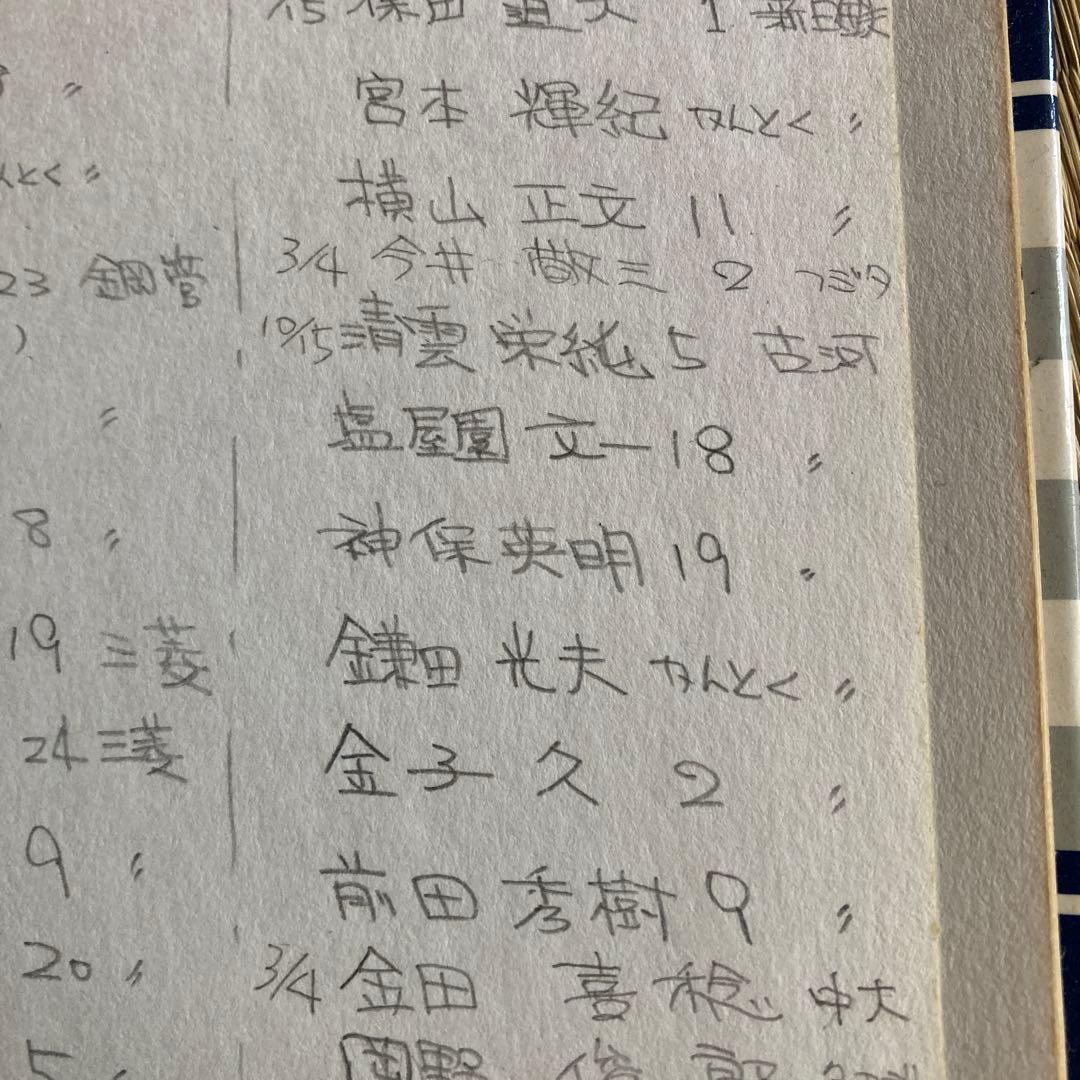 15 保田 1 新日鉄
宮本 輝紀 かんとく 〃
横山 正文 11 〃
3/4 今井 敬三 2 フジタ
10/15 清雲 栄純 5 古河
塩屋園 文一 18 〃
神保英明 19 〃
鎌田 光夫 かんとく 〃
金子 久 2 〃
前田 秀樹 9 〃
3/4 金田 喜稔 中大
岡野 俊一郎
〃
んとく 〃
23 鋼管
〃
8 〃
19 三菱
24 三菱
9 〃
20 〃
5 〃